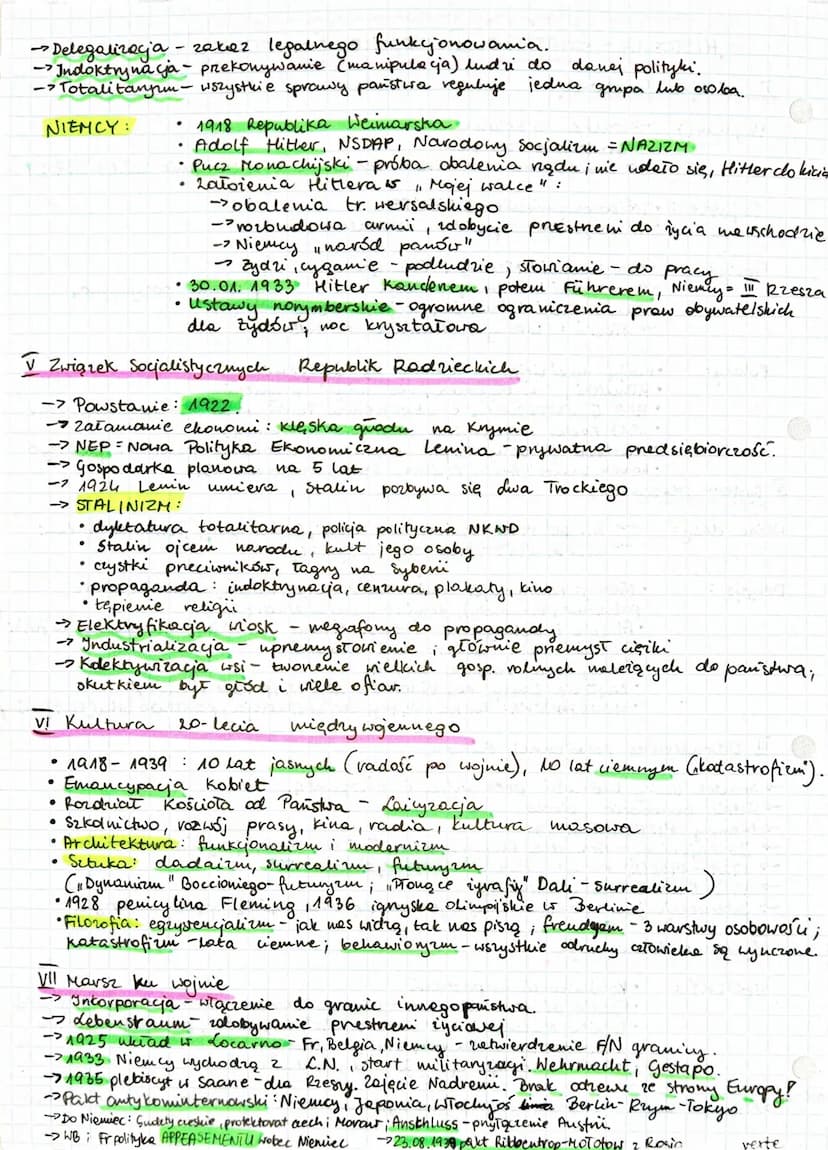 → Delegalizacja – zakaz legalnego funkcjonowania.
→ Indoktrynacja – przekonywanie (manipulacja) ludzi do danej polityki.
→ Totalitaryzm – wszystkie sprawy państwa reguluje jedna grupa lub osoba.
NIEMCY: • 1918 Republika Weimarska
• Adolf Hitler, NSDAP, Narodowy Socjalizm = NAZIZM
• Pucz Monachijski – próba obalenia rządu; nie udało się, Hitler do kicia
• Założenia Hitlera w „Mojej walce":
→ obalenia tr. wersalskiego
→ rozbudowa armii, zdobycie przestrzeni do życia na wschodzie
→ Niemcy „naród panów"
→ Żydzi, cyganie – podludzie, słowianie – do pracy
• 30.01.1933 Hitler Kanclerzem, potem Führerem, Niemcy = III Rzesza
• Ustawy norymberskie – ogromne ograniczenia praw obywatelskich
dla żydów; noc kryształowa
V Związek Socjalistycznych Republik Radzieckich
→ Powstanie: 1922.
→ Załamanie ekonomi: klęska głodu na Krymie
→ NEP = Nowa Polityka Ekonomiczna Lenina – prywatna przedsiębiorczość.
→ Gospodarka planowa na 5 lat
→ 1924 Lenin umiera, Stalin pozbywa się Lwa Trockiego
→ STALINIZM:
• dyktatura totalitarna, policja polityczna NKWD
• Stalin ojcem narodu, kult jego osoby
• czystki przeciwników, łagry na Syberii
• propaganda: indoktrynacja, cenzura, plakaty, kino
• tępienie religii
→ Elektryfikacja wiosk – megafony do propagandy
→ Industrializacja – uprzemysłowienie; głównie przemysł ciężki
→ Kolektywizacja wsi – tworzenie wielkich gosp. rolnych należących do państwa;
skutkiem był głód i wiele ofiar.
VI Kultura 20-lecia międzywojennego
• 1918-1939: 10 lat jasnych (radość po wojnie), 10 lat ciemnym („katastrofizm").
• Emancypacja kobiet
• Rozdział Kościoła od Państwa – Laicyzacja
• Szkolnictwo, rozwój prasy, kina, radia, kultura masowa
• Architektura: funkcjonalizm i modernizm
• Sztuka: dadaizm, surrealizm, futuryzm
(„Dynamizm" Boccioniego – futuryzm; „Płonące żyrafy" Dali – surrealizm)
• 1928 penicylina Fleming, 1936 igrzyska olimpijskie w Berlinie
• Filozofia: egzystencjalizm – jak nas widzą, tak nas piszą; freudyzm – 3 warstwy osobowości;
katastrofizm – lata ciemne; behawioryzm – wszystkie odruchy człowieka są wyuczone.
VII Marsz ku wojnie
→ Inkorporacja – włączenie do granic innego państwa.
→ Lebensraum – zdobywanie przestrzeni życiowej
→ 1925 układ w Locarno – Fr, Belgia, Niemcy – zatwierdzenie F/N granicy.
→ 1933 Niemcy wychodzą z L.N., start militaryzacji. Wehrmacht, Gestapo.
→ 1935 plebiscyt w Saarze – dla Rzeszy. Zajęcie Nadrenii. Brak odzewu ze strony Europy!
→ Pakt antykominternowski: Niemcy, Japonia, Włochy, oś Berlin – Rzym – Tokyo
→ Do Niemiec: Sudety czeskie, protektorat Czech i Moraw; Anschluss – przyłączenie Austrii.
→ WB i Fr polityka APPEASEMENTU wobec Niemiec → 23.08.1939 pakt Ribbentrop-Mołotow z Rosją verte